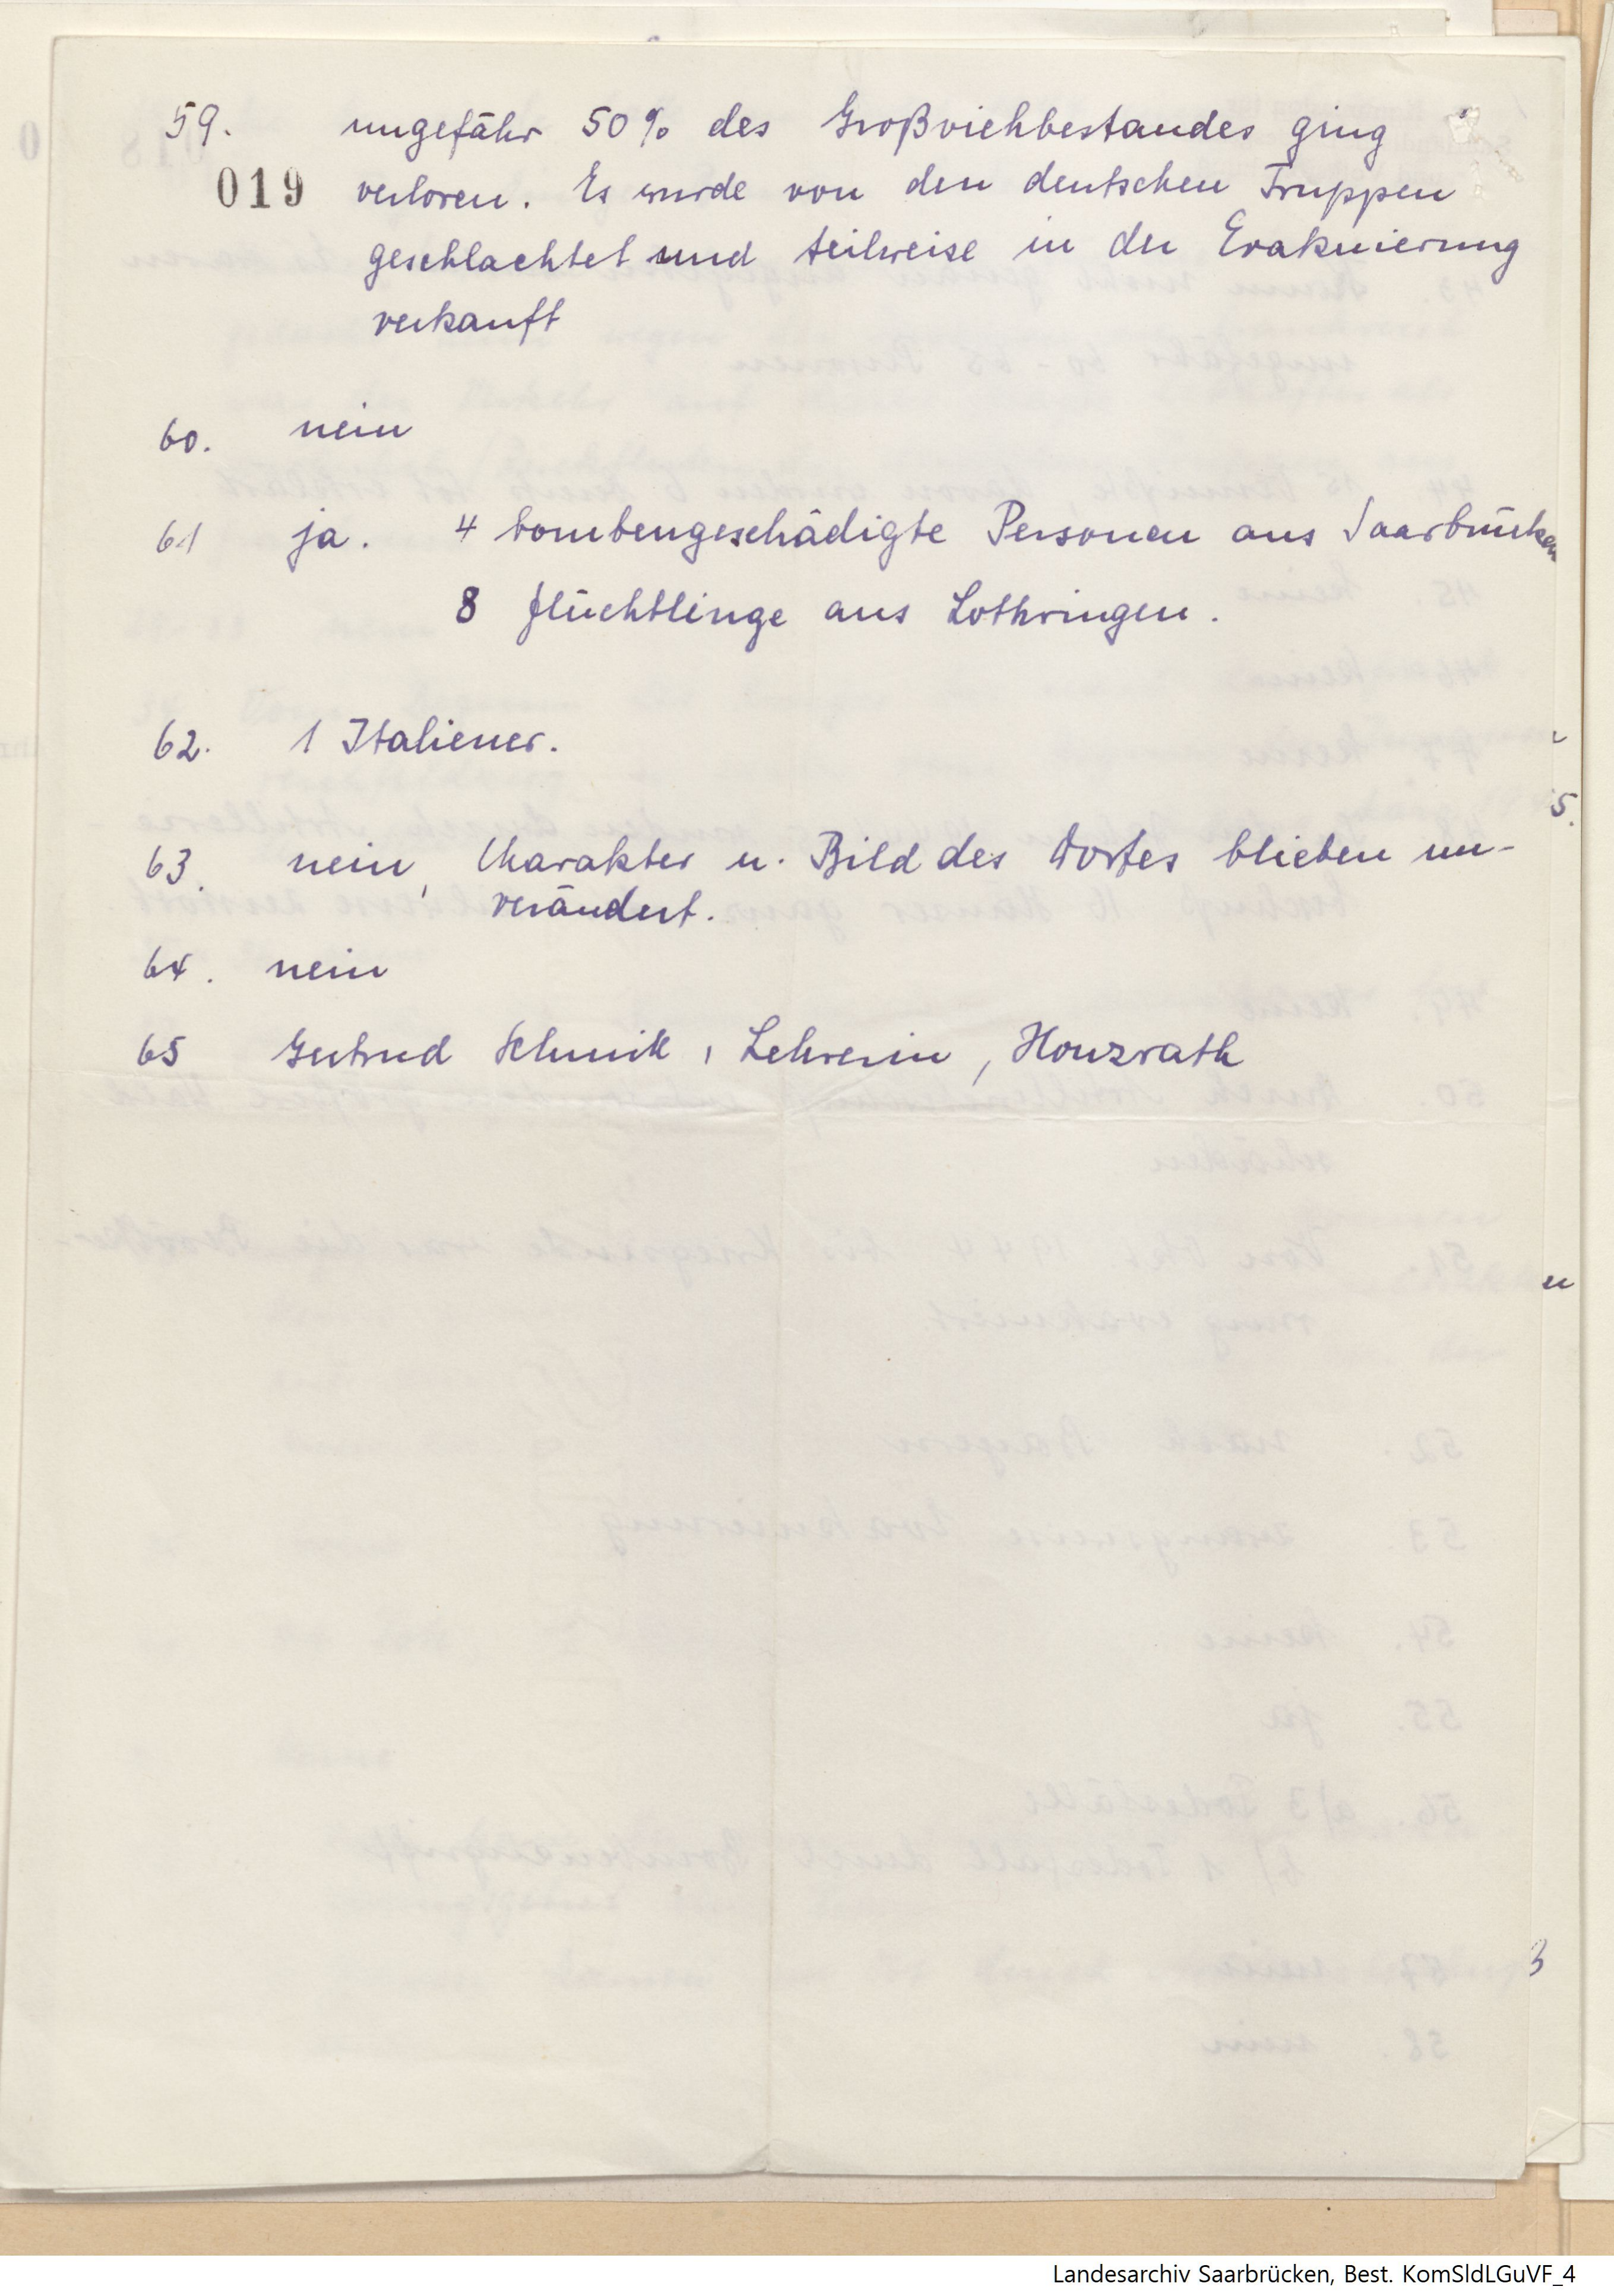 59. ungefähr 50% des Großviehbestandes ging
019 verloren. Es wurde von den deutschen Truppen
geschlachtet und teilweise in der Evakuierung
verkauft
60. nein
61 ja. 4 bombengeschädigte Personen aus Saarbrücken
8 Flüchtlinge aus Lothringen.
62. 1 Italiener.
63. nein, Charakter u. Bild des Dorfes blieben un-
verändert.
64. nein
65 Gertrud , Lehrerin, Honzrath
Landesarchiv Saarbrücken, Best. KomSldLGuVF_4